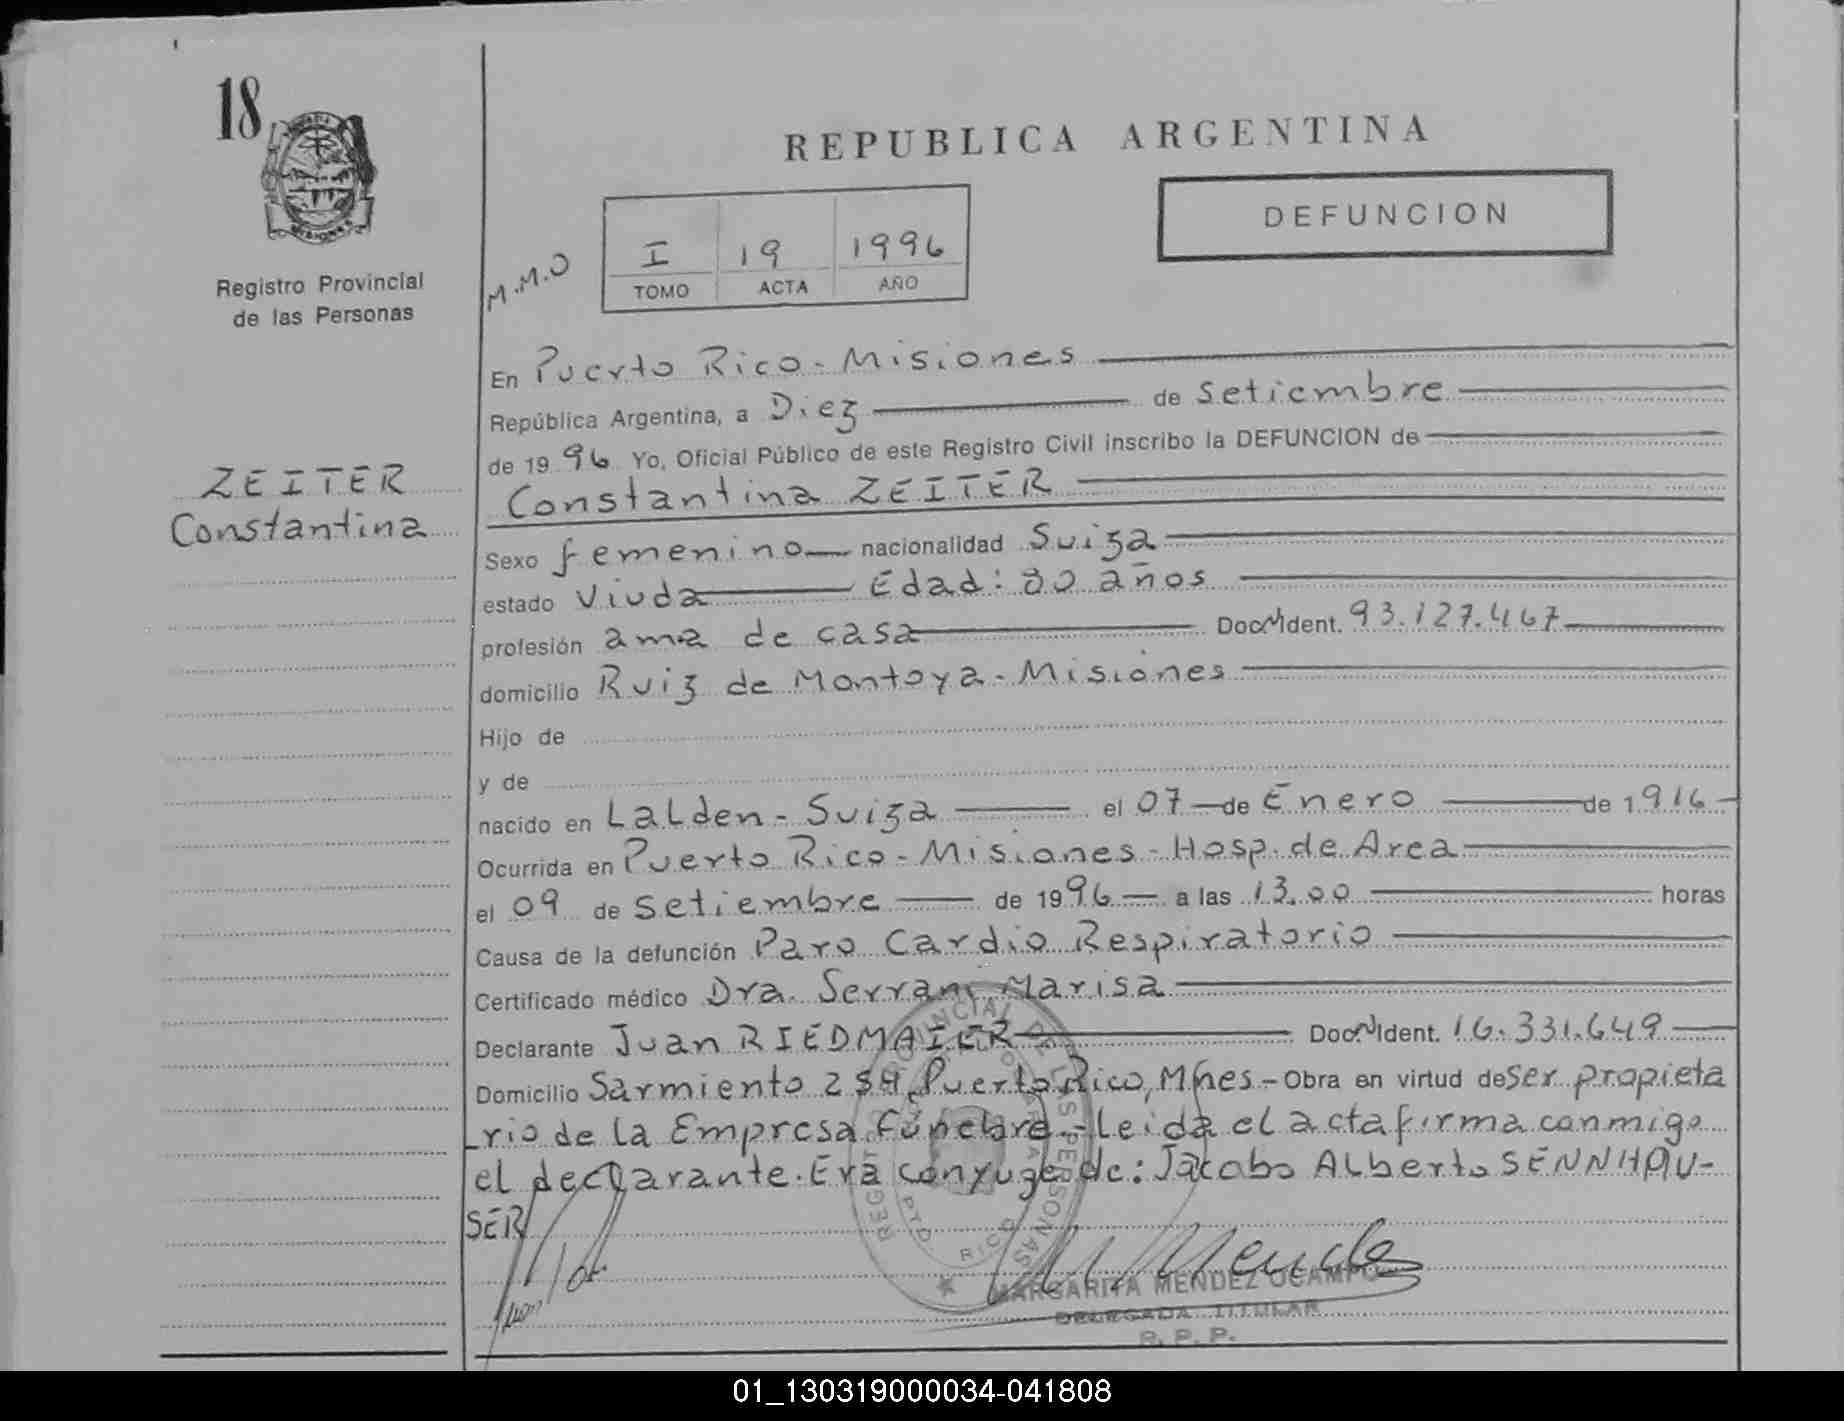 18
Registro Provincial
de las Personas
ZEITER
Constantina
REPUBLICA ARGENTINA
DEFUNCION
M.M.O
I 19 1996
TOMO ACTA AÑO
En Puerto Rico - Misiones
República Argentina, a Diez de Setiembre
de 1996 Yo, Oficial Público de este Registro Civil inscribo la DEFUNCION de
Constantina ZEITER
Sexo femenino nacionalidad Suiza
estado Viuda Edad: 80 años
profesión ama de casa Doc. Ident. 93.127.467
domicilio Ruiz de Montoya - Misiones
Hijo de
y de
nacido en Lalden - Suiza el 07 de Enero de 1916
Ocurrida en Puerto Rico - Misiones - Hosp. de Area
el 09 de Setiembre de 1996 a las 13.00 horas
Causa de la defunción Paro Cardio Respiratorio
Certificado médico Dra. Serrani Marisa
Declarante Juan RIEDMAIER Doc. Ident. 16.331.649
Domicilio Sarmiento Puerto Rico, Mnes - Obra en virtud de Ser propieta
rio de la Empresa Fúnebre - Leida el acta firma conmigo
el declarante. Era conyuge de: Jacobo Alberto SENNHAU-
SER
MARGARITA MENDEZ OCAMPO
DELEGADA TITULAR
R. P. P.
01_130319000034-041808